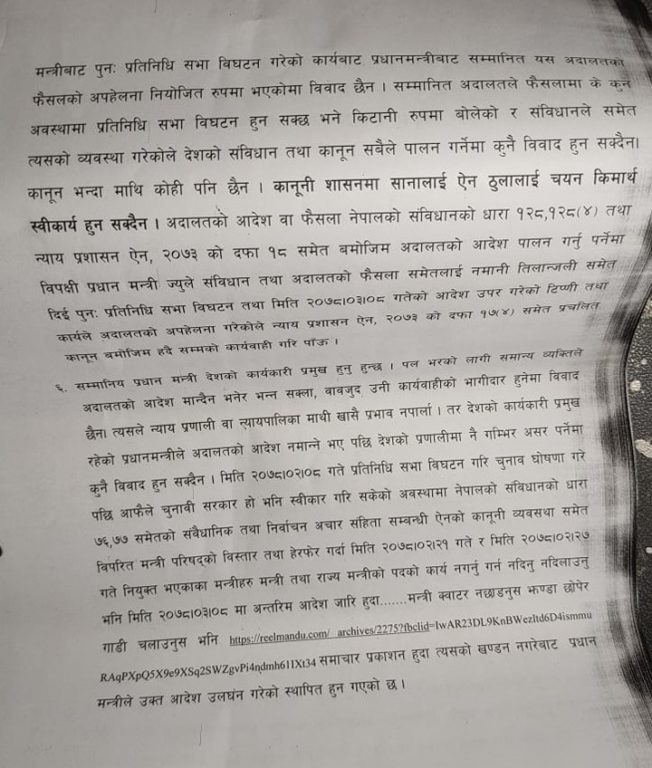 मन्त्रीबाट पुनः प्रतिनिधि सभा विघटन गरेको कार्यबाट प्रधानमन्त्रीबाट सम्मानित यस अदालतको
फैसलको अपहेलना नियोजित रुपमा भएकोमा विवाद छैन । सम्मानित अदालतले फैसलामा के कुन
अवस्थामा प्रतिनिधि सभा विघटन हुन सक्छ भने किटानी रुपमा बोलेको र संविधानले समेत
त्यसको व्यवस्था गरेकोले देशको संविधान तथा कानून सबैले पालन गर्नेमा कुनै विवाद हुन सक्दैन।
कानून भन्दा माथि कोही पनि छैन । कानूनी शासनमा सानालाई ऐन ठुलालाई चयन किमार्थ
स्वीकार्य हुन सक्दैन । अदालतको आदेश वा फैसला नेपालको संविधानको धारा १२८,१२८(४) तथा
न्याय प्रशासन ऐन, २०७३ को दफा १८ समेत बमोजिम अदालतको आदेश पालन गर्नु पर्नेमा
विपक्षी प्रधान मन्त्री ज्युले संविधान तथा अदालतको फैसला समेतलाई नमानी तिलान्जली समेत
दिई पुनः प्रतिनिधि सभा विघटन तथा मिति २०७८।०३।०८ गतेको आदेश उपर गरेको टिप्णी तथा
कार्यले अदालतको अपहेलना गरेकोले न्याय प्रशासन ऐन, २०७३ को दफा १७(४) समेत प्रचलित
कानून बमोजिम हदै सम्मको कार्यवाही गरि पाँऊ ।
६. सम्मानिय प्रधान मन्त्री देशको कार्यकारी प्रमुख हुनु हुन्छ । पल भरको लागी समान्य व्यक्तिले
अदालतको आदेश मान्दैन भनेर भन्न सक्ला, वावजुद उनी कार्यवाहीको भागीदार हुनेमा विवाद
छैन। त्यसले न्याय प्रणाली वा न्यायपालिका माथी खासै प्रभाव नपार्ला । तर देशको कार्यकारी प्रमुख
रहेको प्रधानमन्त्रीले अदालतको आदेश नमान्ने भए पछि देशको प्रणालीमा नै गम्भिर असर पर्नेमा
कुनै विवाद हुन सक्दैन । मिति २०७८।०२।०८ गते प्रतिनिधि सभा विघटन गरि चुनाव घोषणा गरे
पछि आफैले चुनावी सरकार हो भनि स्वीकार गरि सकेको अवस्थामा नेपालको संविधानको धारा
७६,७७ समेतको संवैधानिक तथा निर्वाचन अचार संहिता सम्बन्धी ऐनको कानूनी व्यवसथा समेत
विपरित मन्त्री परिषद्को विस्तार तथा हेरफेर गर्दा मिति २०७८।०२।२१ गते र मिति २०७८।०२।२७
गते नियुक्त भएकाका मन्त्रीहरु मन्त्री तथा राज्य मन्त्रीको पदको कार्य नगर्नु गर्न नदिनु नदिलाउनु
भनि मिति २०७८।०३।०८ मा अन्तरिम आदेश जारि हुदा.......मन्त्री क्वाटर नछाडनुस झण्डा छोपेर
गाडी चलाउनुस भनि https://reelmandu.com/ archives/2275?fbclid=IwAR23DL9KnBWezItd6D4ismmu
RAqPXpQ5X9e9XSq2SWZgvPi4ndmh61IXt34 समाचार प्रकाशन हुदा त्यसको खण्डन नगरेबाट प्रधान
मन्त्रीले उक्त आदेश उलघंन गरेको स्थापित हुन गएको छ ।